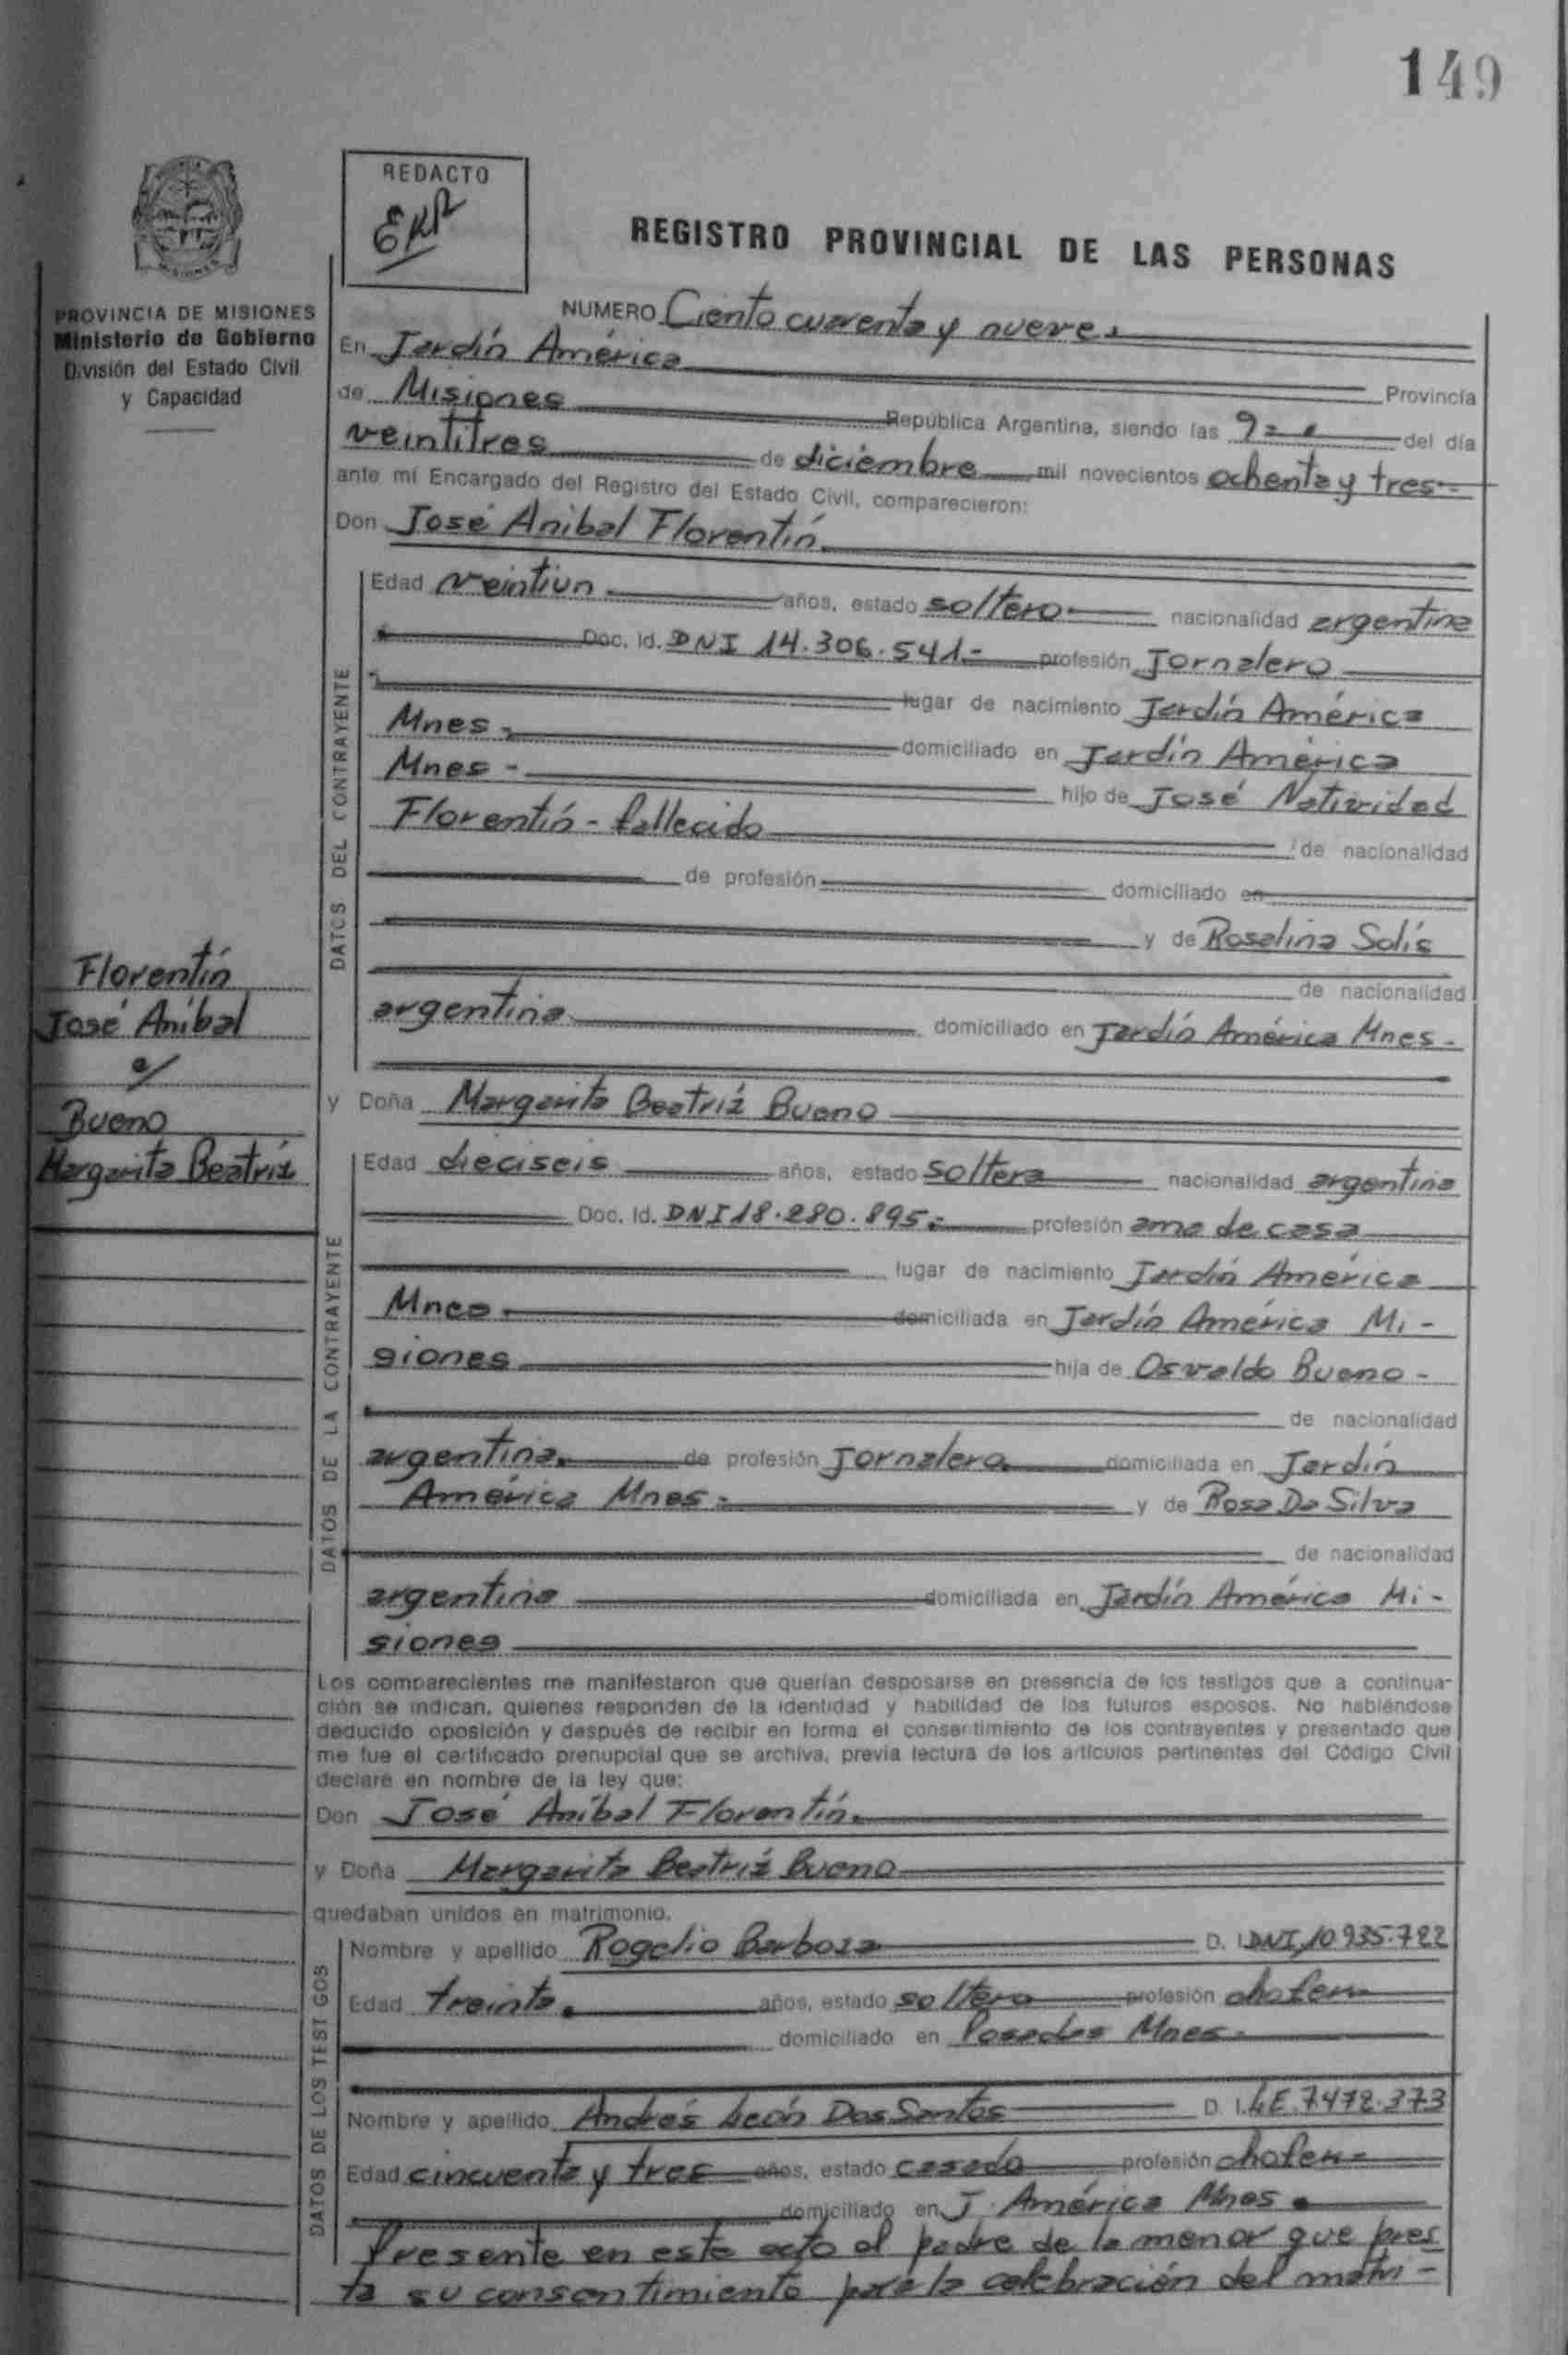 149
REDACTO
EKR
REGISTRO PROVINCIAL DE LAS PERSONAS
PROVINCIA DE MISIONES
Ministerio de Gobierno
División del Estado Civil
y Capacidad
NUMERO Ciento cuarenta y nueve.
En Jardín América Provincia
de Misiones República Argentina, siendo las 9 del día
veintitres de diciembre mil novecientos ochenta y tres-
ante mí Encargado del Registro del Estado Civil, comparecieron:
Don José Anibal Florentín
DATOS DEL CONTRAYENTE
Edad veintiun años, estado soltero nacionalidad argentina
Doc. Id. DNI 14.306.541.- profesión Jornalero
lugar de nacimiento Jardín América
Mnes.- domiciliado en Jardín América
Mnes - hijo de José Natividad
Florentín - fallecido de nacionalidad
de profesión domiciliado en
y de Rosalina Solís
de nacionalidad
argentina domiciliado en Jardín América Mnes.-
Florentín
José Aníbal
c/
Bueno
Margarita Beatríz
y Doña Margarita Beatríz Bueno
DATOS DE LA CONTRAYENTE
Edad dieciseis años, estado soltera nacionalidad argentina
Doc. Id. DNI 18.280.895.- profesión ama de casa
lugar de nacimiento Jardín América
Mnes. domiciliada en Jardín América Mi-
siones hija de Osvaldo Bueno -
de nacionalidad
argentina. de profesión Jornalero domiciliada en Jardín
América Mnes.- y de Rosa Da Silva
de nacionalidad
argentina domiciliada en Jardín América Mi-
siones
Los comparecientes me manifestaron que querían desposarse en presencia de los testigos que a continua-
ción se indican, quienes responden de la identidad y habilidad de los futuros esposos. No habiéndose
deducido oposición y después de recibir en forma el consentimiento de los contrayentes y presentado que
me fue el certificado prenupcial que se archiva, previa lectura de los artículos pertinentes del Código Civil
declaré en nombre de la ley que:
Don José Aníbal Florentín.
y Doña Margarita Beatríz Bueno
quedaban unidos en matrimonio.
DATOS DE LOS TESTIGOS
Nombre y apellido Rogelio Barboza D. I. DNI 10.935.722
Edad treinta. años, estado soltero profesión chofer
domiciliado en Posadas Mnes.-
Nombre y apellido Andrés León Dos Santos D. I. LE.7.472.373
Edad cincuenta y tres años, estado casado profesión chofer-
domiciliado en J. América Mnes.
Presente en este acto el padre de la menor que pres
ta su consentimiento para la celebración del matri-